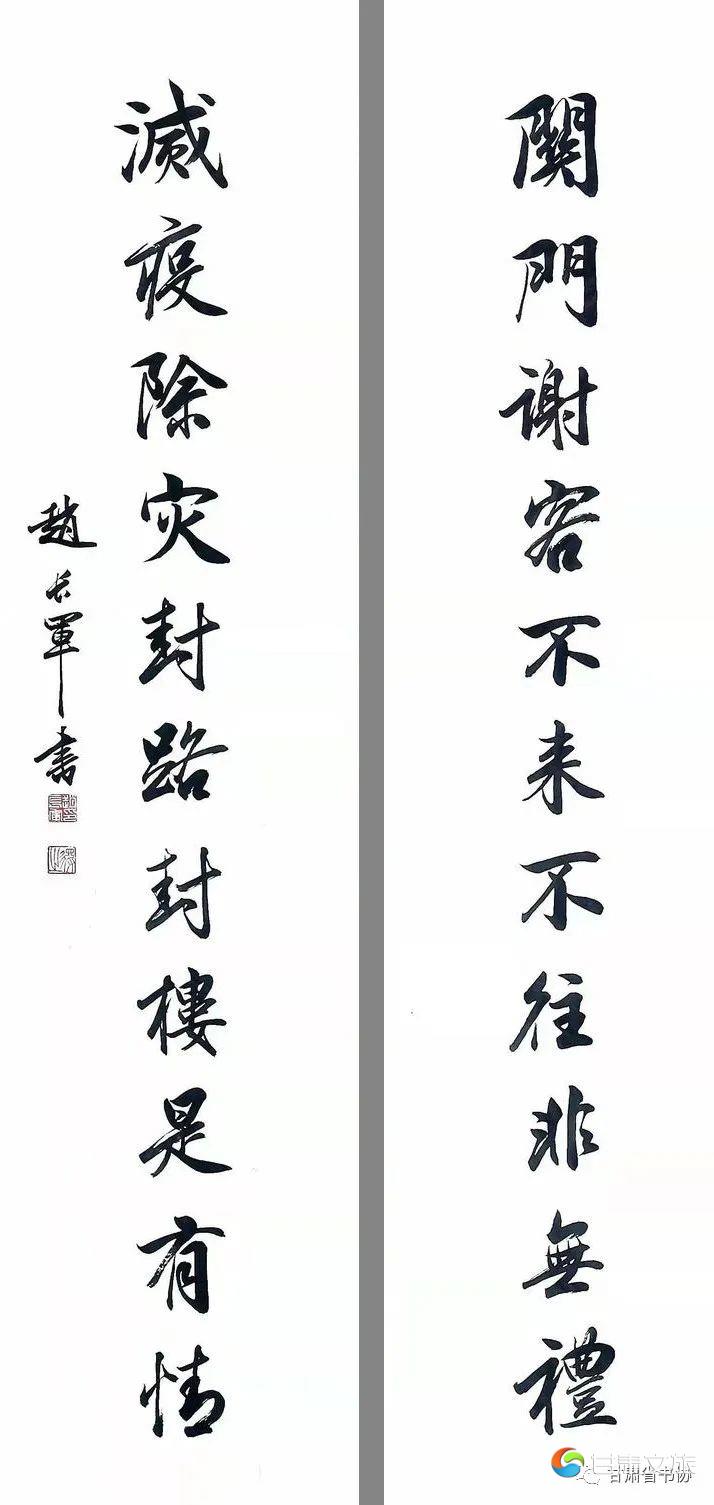 關門谢客不来不往非無禮
滅疫除灾封路封樓是有情
趙长軍书
甘肃文旅
甘肃省书协